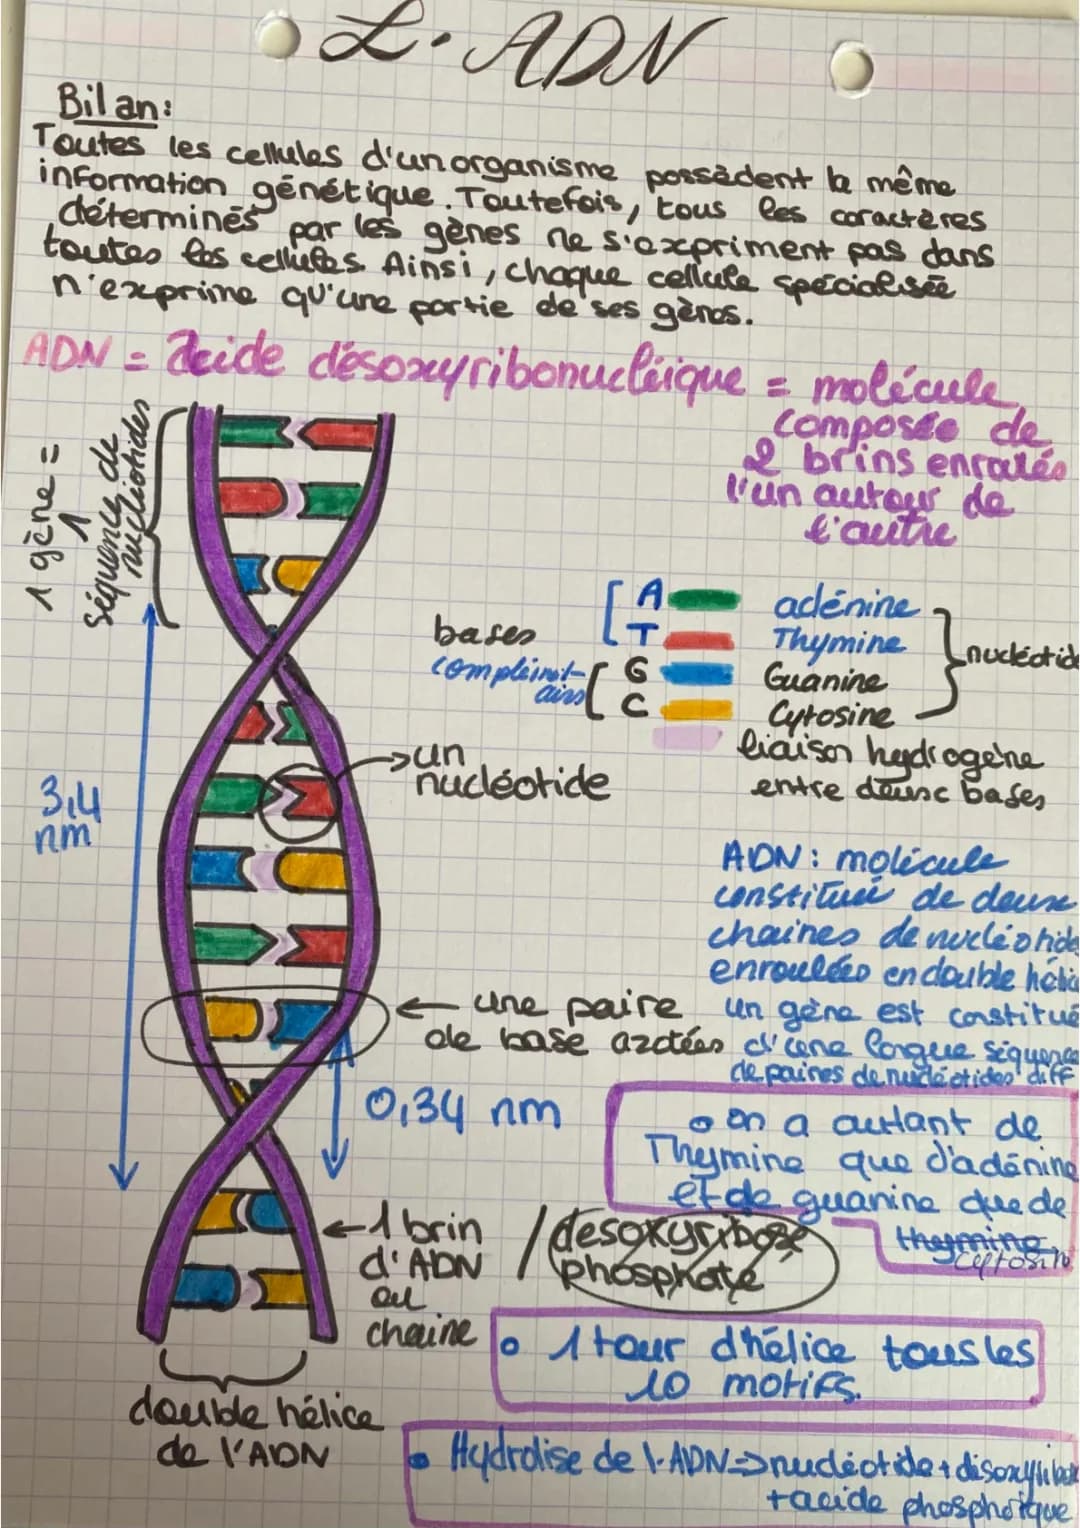 L'ADN
Bilan:
Toutes les cellules d'un organisme possèdent la même
information génétique. Toutefois, tous les caractères
déterminés par les gènes ne s'expriment pas dans
toutes les cellules. Ainsi, chaque cellule spécialisée
n'exprime qu'une partie de ses gènes.
ADN = Acide désoxyribonucléique = molécule
composée de
2 brins enroulés
l'un autour de
l'autre
1 gène =
1
séquence de
nucléotides
bases
complémentaires
A
T
G
C
adénine
Thymine
Guanine
Cytosine
nucléotide
liaison hydrogène
entre deux bases
un
nucléotide
3,4
nm
ADN: molécule
constitué de deux
chaines de nucléotide
enroulées en double héli
un gène est constitué
d'une longue séquence
de paires de nucléotides diff
une paire
de base azotées
0,34 nm
on a autant de
Thymine que d'adénine
et de guanine que de
thymine
cytosine
1 brin
d'ADN
ou
chaine
/ desoxyribose
phosphate
1 tour d'hélice tous les
10 motifs.
double hélice
de l'ADN
Hydrolise de l'ADN => nucléotide +
+ acide phosphorique